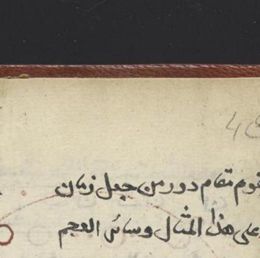 يقوم مقام دور من جعل زمان
وعلى هذا المثال وسائر العجم